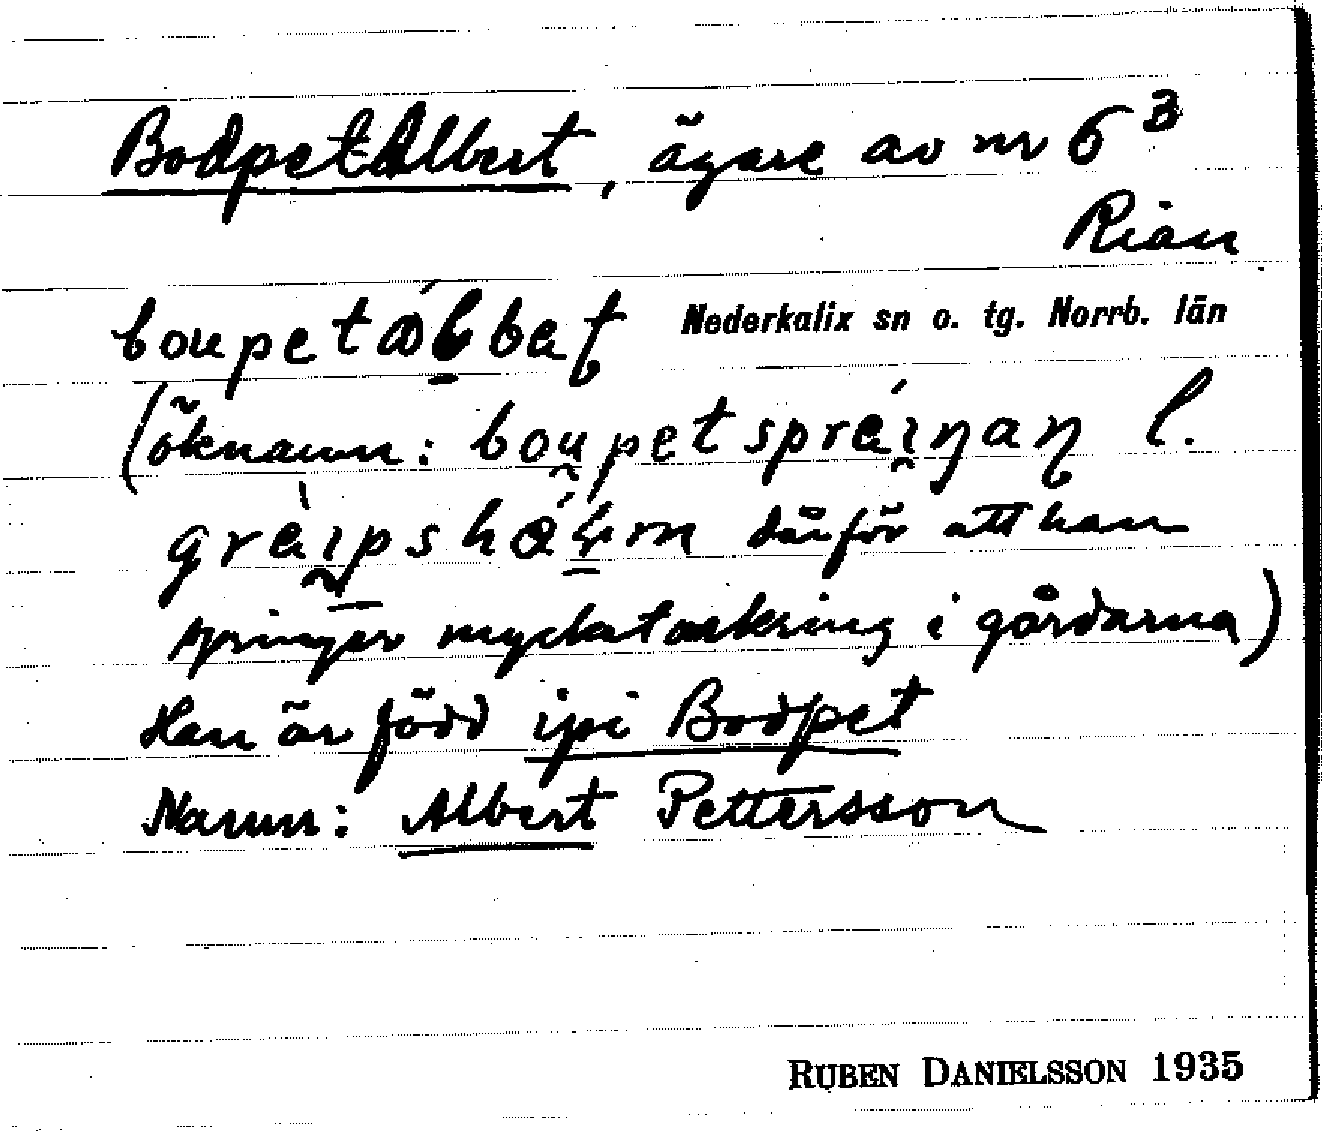 BodpetAlbert, ägare av nr 6³
Riån
boupetáḻbeʈ Nederkalix sn o. tg. Norrb. län
(öknamn: bou̯petspréi̯ŋaɳ l.
grèi̯ps há m därför att han
springer mycket omkring i gårdarna)
Han är född ipi Bodpet
Namn: Albert Pettersson
RUBEN DANIELSSON 1935